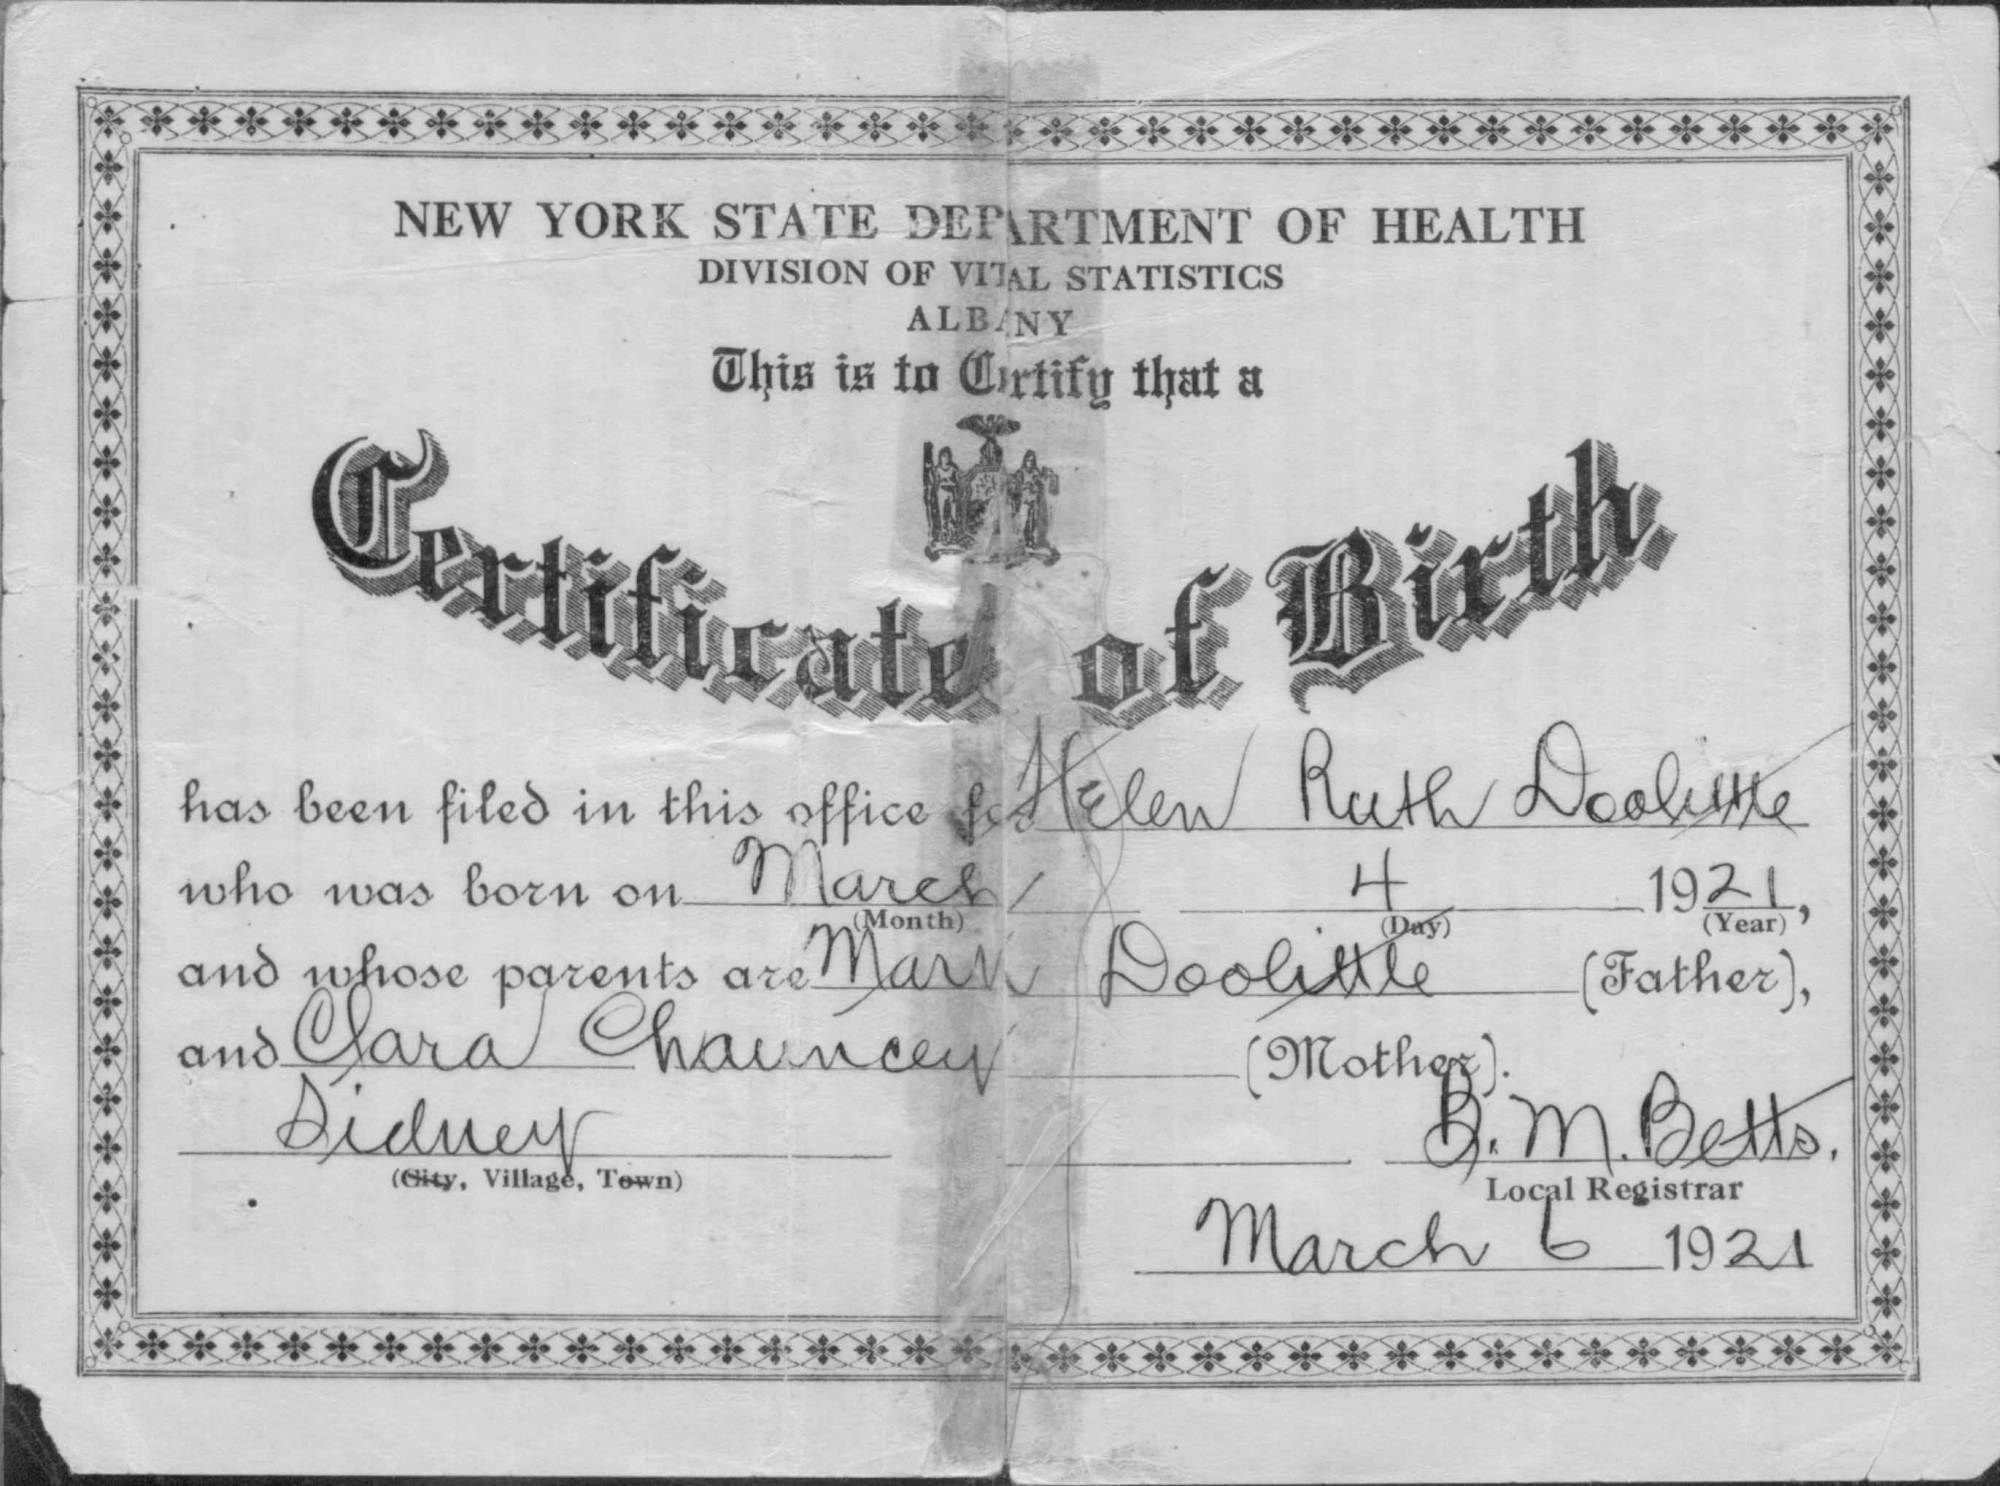 NEW YORK STATE DEPARTMENT OF HEALTH
DIVISION OF VITAL STATISTICS
ALBANY
This is to Certify that a
Certificate of Birth
has been filed in this office for Helen Ruth Doolittle
who was born on March 4 1921,
(Month) (Day) (Year)
and whose parents are Doolittle (Father),
and Clara Chauncey (Mother).
Sidney B. M. Betts.
(City, Village, Town) Local Registrar
March 6 1921